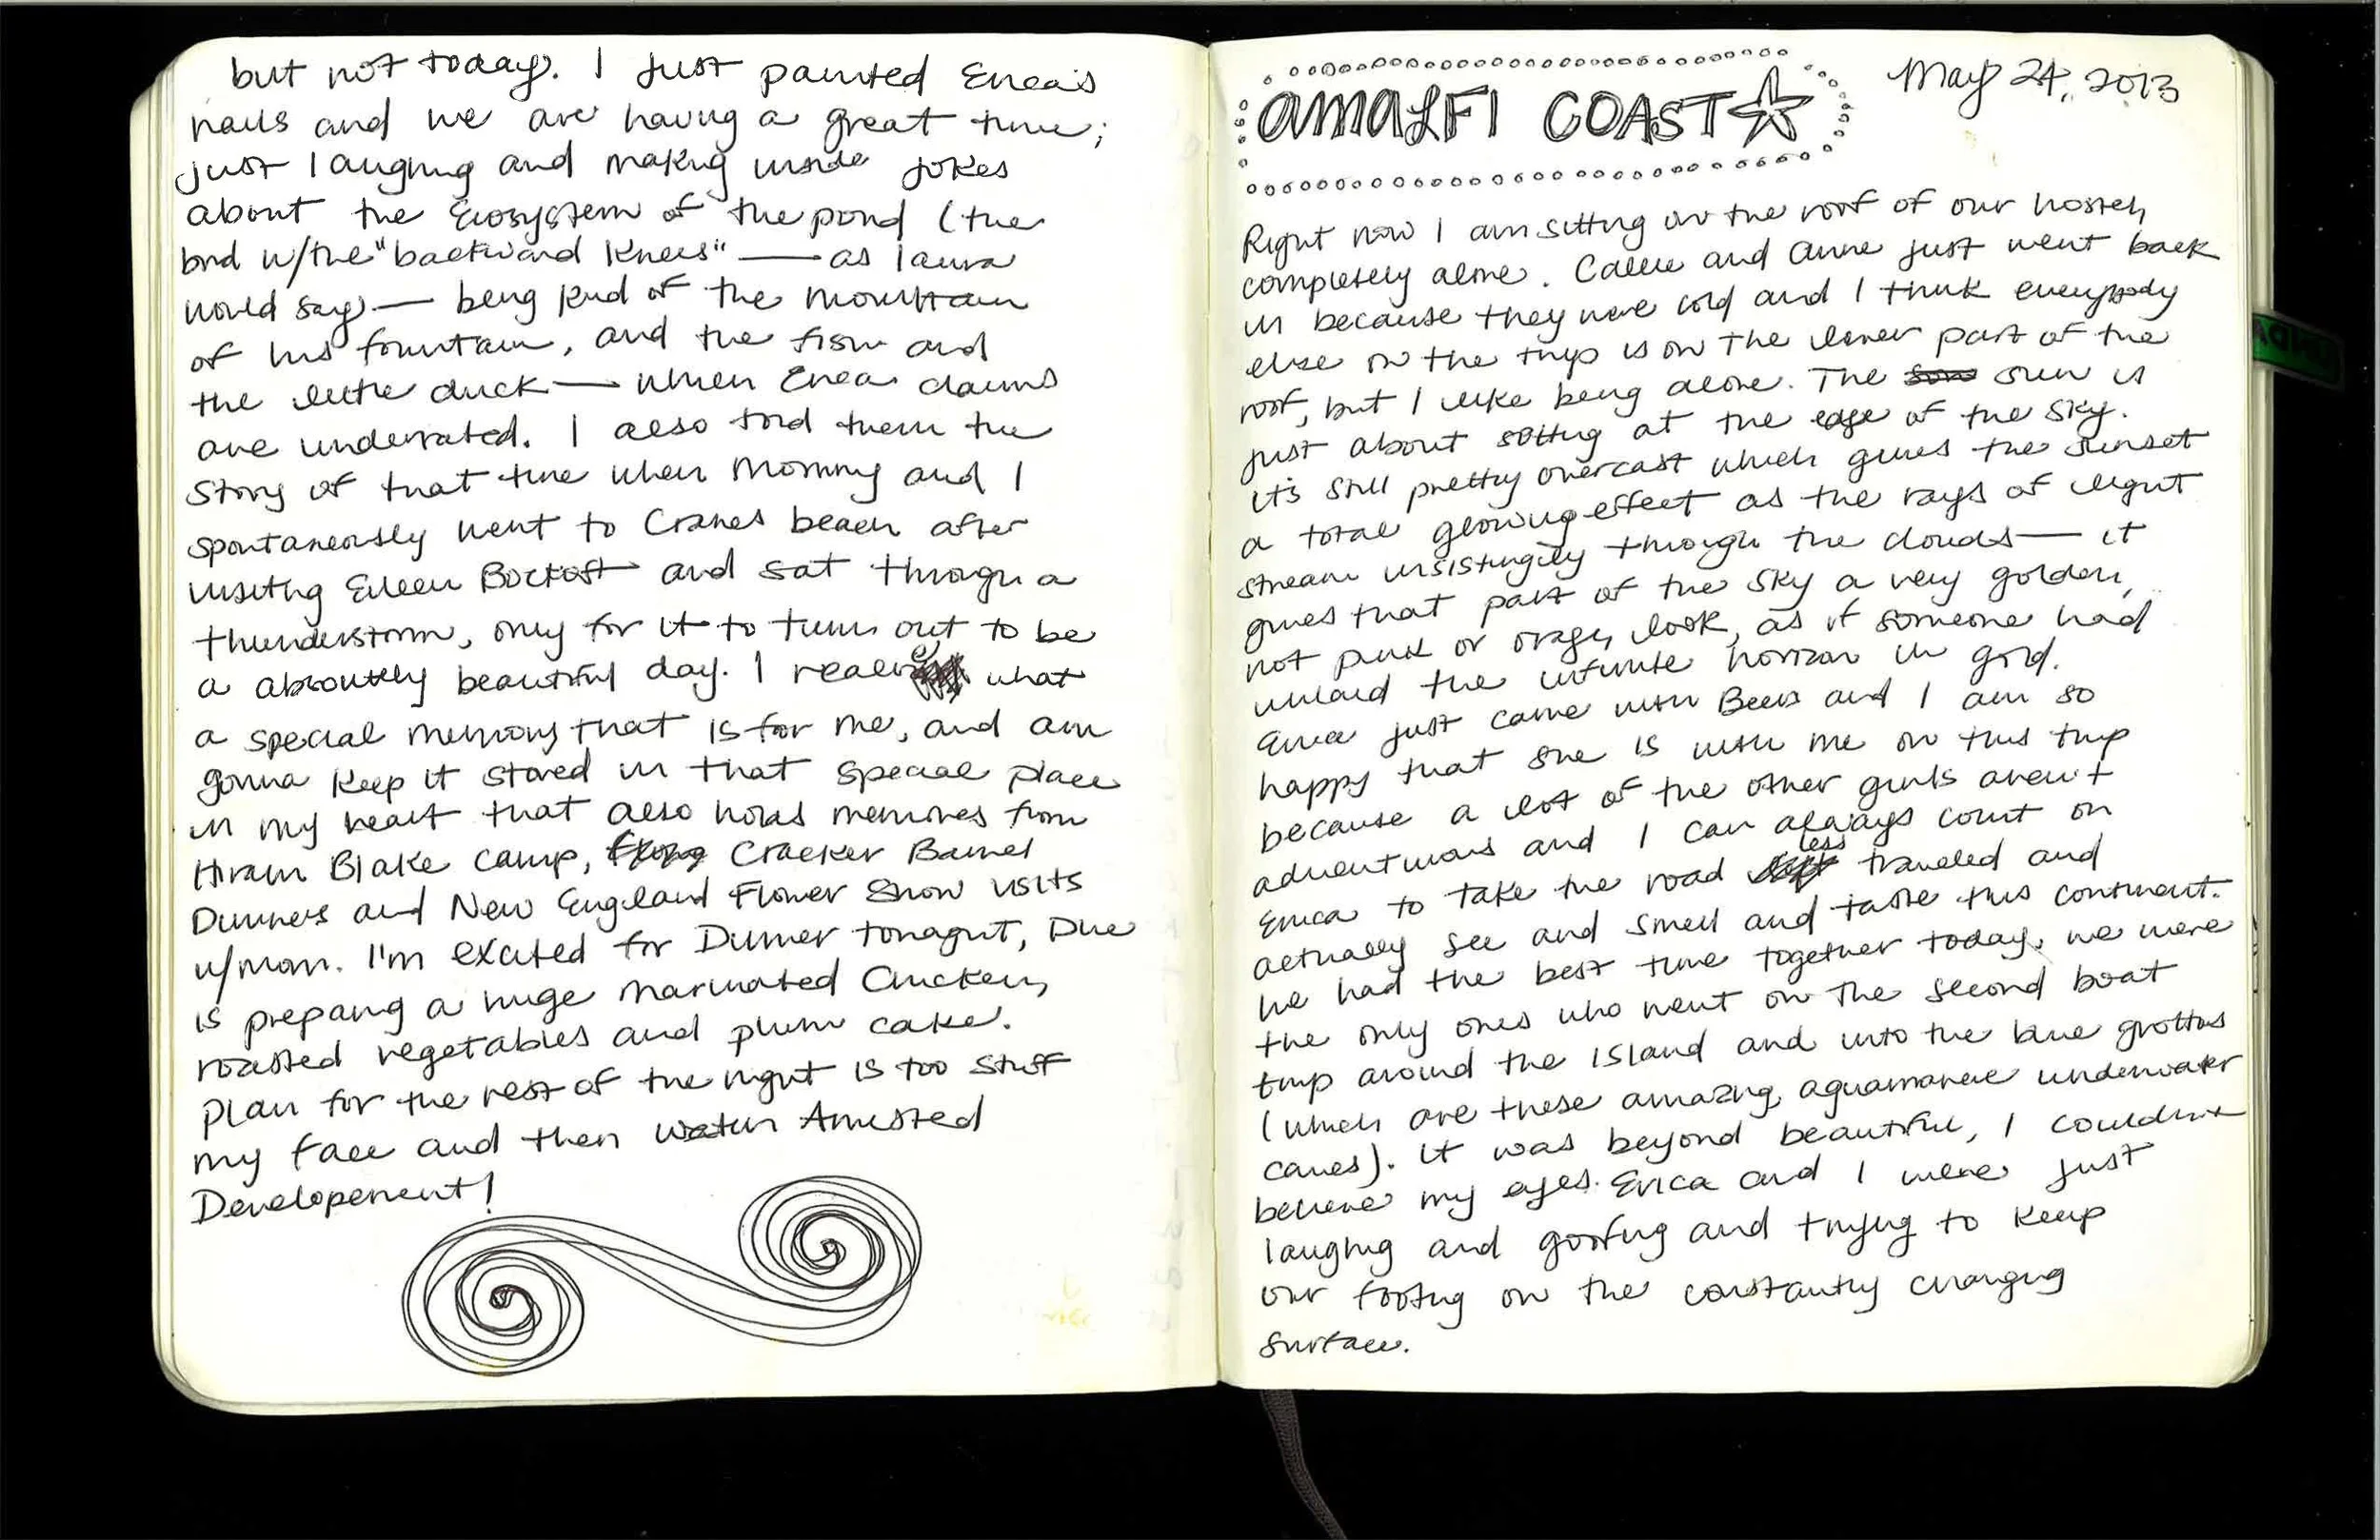 but not today. I just painted Erica's
nails and we are having a great time;
just laughing and making inside jokes
about the Ecosystem of the pond (the
bird w/the "backward knees" — as laura
would say) — being kind of the mountain
of his fountain, and the fish and
the little duck — when Erica claims
are underrated. I also told them the
story of that time when Mommy and I
spontaneously went to Cranes beach after
visiting Eileen and sat through a
thunderstorm, only for it to turn out to be
a absolutely beautiful day. I realize what
a special memory that is for me, and am
gonna keep it stored in that special place
in my heart that also holds memories from
Hiram Blake Camp, Cracker Barrel
Dinners and New England Flower Show visits
w/mom. I'm excited for Dinner tonight, Due
is preparing a huge marinated Chicken,
roasted vegetables and plum cake.
Plan for the rest of the night is too stuff
my face and then watch Arrested
Developement!
AMALFI COAST
May 24, 2013
Right now I am sitting on the roof of our hostel,
completely alone. Callie and Anne just went back
in because they were cold and I think everybody
else on the trip is on the lower part of the
roof, but I like being alone. The son sun is
just about setting at the edge of the sky.
it's still pretty overcast which gives the sunset
a total glowing effect as the rays of light
stream insistingly through the clouds — it
gives that part of the sky a very golden,
not pink or orange, look, as if someone had
inlaid the infinite horizon in gold.
Erica just came with Beers and I am so
happy that she is with me on this trip
because a lot of the other girls aren't
adventurous and I can always count on
Erica to take the road less traveled and
actually see and smell and taste this continent.
We had the best time together today, we were
the only ones who went on the second boat
trip around the island and into the blue grottos
(which are these amazing, aquamarine underwater
caves). It was beyond beautiful, I couldn't
believe my eyes. Erica and I were just
laughing and goofing and trying to keep
our footing on the constantly changing
surface.